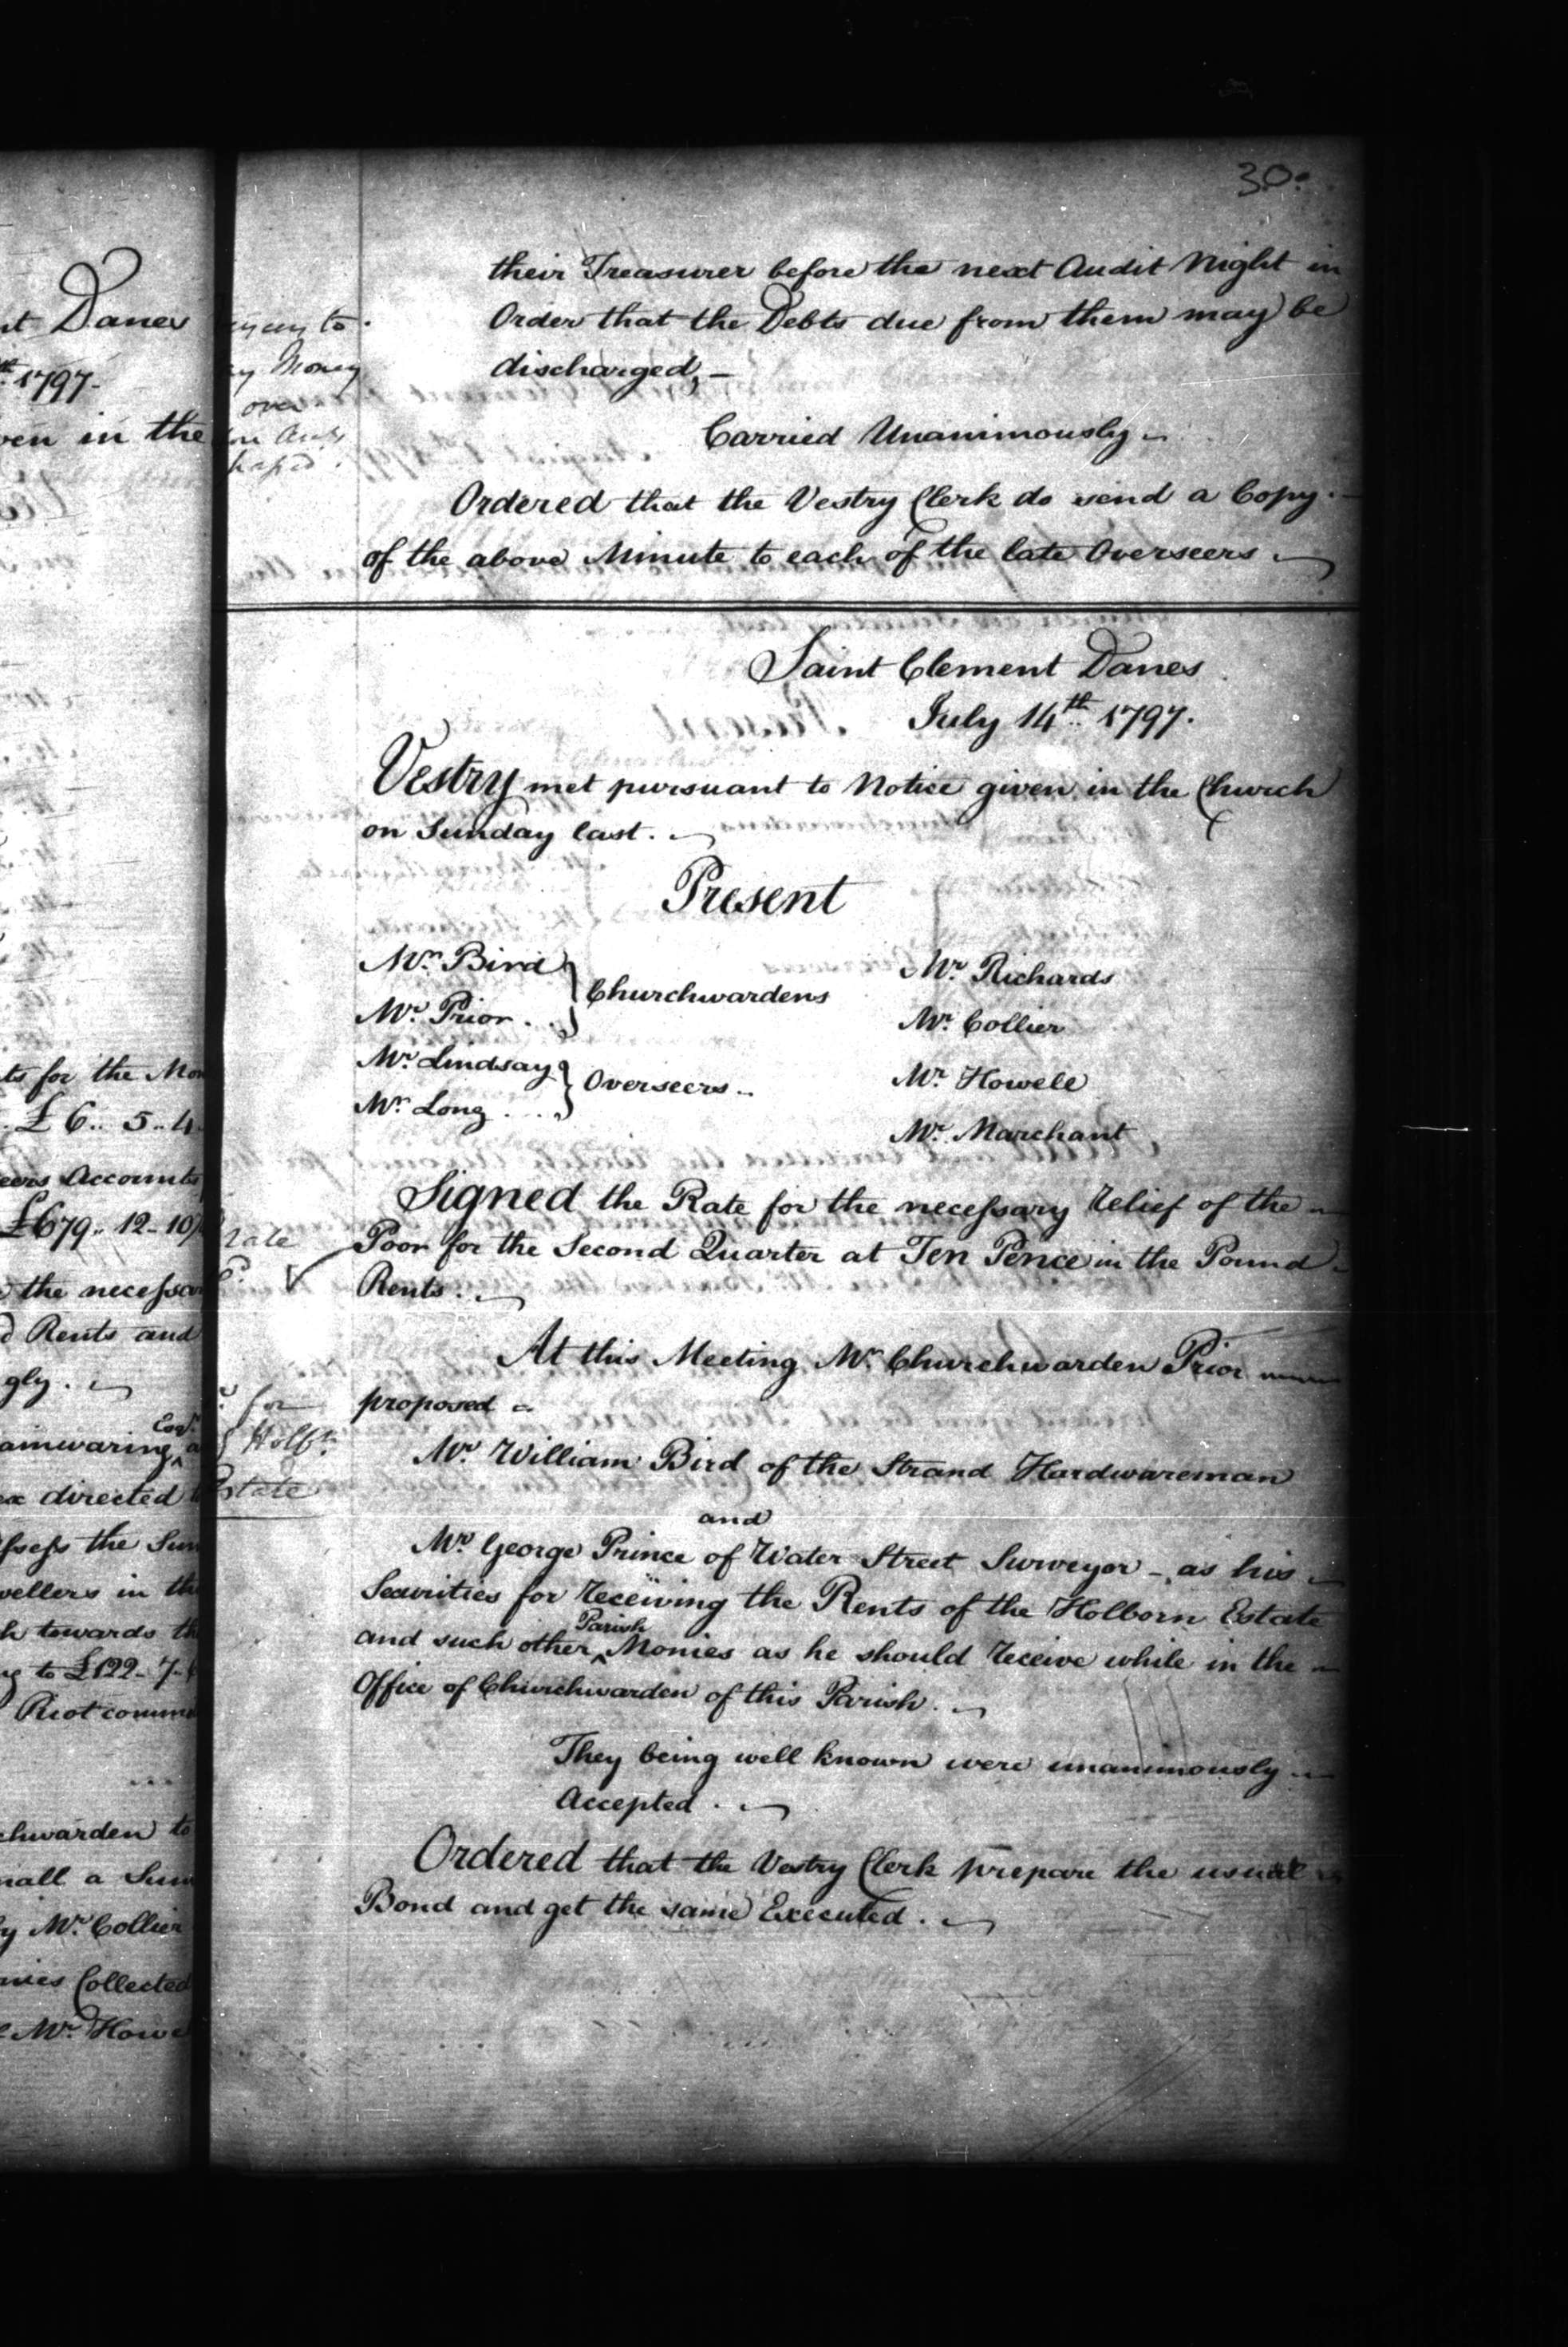 nt Danes
1797.
ven in the
ts for the Mon
£ 6.. 5.. 4
eers Accounts
£679.. 12- 10
the necessa
Rents and
gly.
Esqr.
ainwaring
directed
ssess the Sum
wellers in the
h towards th
to £122- 7-
Riot comm
chwarden to
hall a Sum
by Mr. Collier
nies Collected
Mr. Howe
30.
to
Money
over
Rate
for
Holbn.
Estate
their Treasurer before the next Audit Night in
Order that the Debts due from them may be
discharged,-
Carried Unanimously
Ordered that the Vestry Clerk do send a Copy
of the above Minute to each of the late Overseers
Saint Clement Danes
July 14th. 1797.
Vestry met pursuant to Notice given in the Church
on Sunday last.
Present
Mr. Bird
Mr. Prior
} Churchwardens
Mr. Lindsay
Mr. Long
} Overseers
Mr. Richards
Mr. Collier
Mr. Howell
Mr. Marchant
Signed the Rate for the necessary relief of the
Poor for the Second Quarter at Ten Pence in the Pound
Rents.
At this Meeting Mr. Churchwarden Prior
proposed
Mr. William Bird of the Strand Hardwareman
and
Mr. George Prince of Water Street Surveyor - as his
Securities for receiving the Rents of the Holborn Estate
and such other ^Parish Monies as he should receive while in the
Office of Churchwarden of this Parish.
They being well known were unanimously
Accepted.
Ordered that the Vestry Clerk prepare the usual
Bond and get the same Executed.